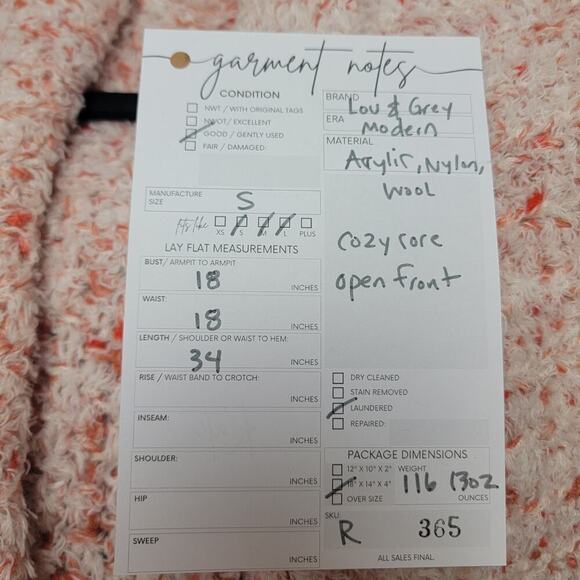 garment notes
CONDITION
NWT / WITH ORIGINAL TAGS
NWOT/ EXCELLENT
GOOD / GENTLY USED
FAIR / DAMAGED:
BRAND Lou & Grey
ERA Modern
MATERIAL
Arylic, Nylon,
Wool
cozy core
open front
MANUFACTURE SIZE S
fits like XS S M L PLUS
LAY FLAT MEASUREMENTS
BUST/ ARMPIT TO ARMPIT:
18 INCHES
WAIST:
18 INCHES
LENGTH / SHOULDER OR WAIST TO HEM:
34 INCHES
RISE / WAIST BAND TO CROTCH:
INCHES
INSEAM:
INCHES
SHOULDER:
INCHES
HIP
INCHES
SWEEP
INCHES
DRY CLEANED
STAIN REMOVED
LAUNDERED
REPAIRED:
PACKAGE DIMENSIONS
12" X 10" X 2"
18" X 14" X 4"
OVER SIZE
WEIGHT
1lb 13oz
OUNCES
SKU:
R 365
ALL SALES FINAL